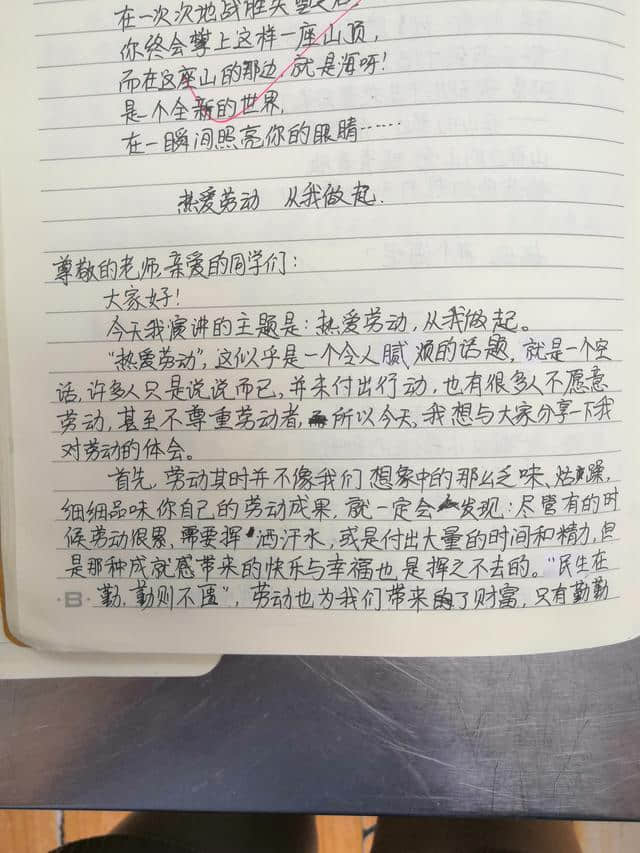 在一次次地战胜失望之后
你终会攀上这样一座山顶,
而在这座山的那边,就是海呀!
是个全新的世界,
在一瞬间照亮你的眼睛……
热爱劳动 从我做起.
尊敬的老师,亲爱的同学们:
大家好!
今天我演讲的主题是:热爱劳动,从我做起。
“热爱劳动”,这似乎是一个令人腻烦的话题,就是一个空
话,许多人只是说说而已,并未付出行动,也有很多人不愿意
劳动,甚至不尊重劳动者,所以今天,我想与大家分享一下我
对劳动的体会。
首先,劳动其时并不像我们想象中的那么乏味、枯燥,
细细品味你自己的劳动成果,就一定会发现:尽管有的时
候劳动很累、需要挥洒汗水,或是付出大量的时间和精力,但
是那种成就感带来的快乐与幸福也是挥之不去的。“民生在
勤,勤则不匮”,劳动也为我们带来了财富,只有勤勤
B